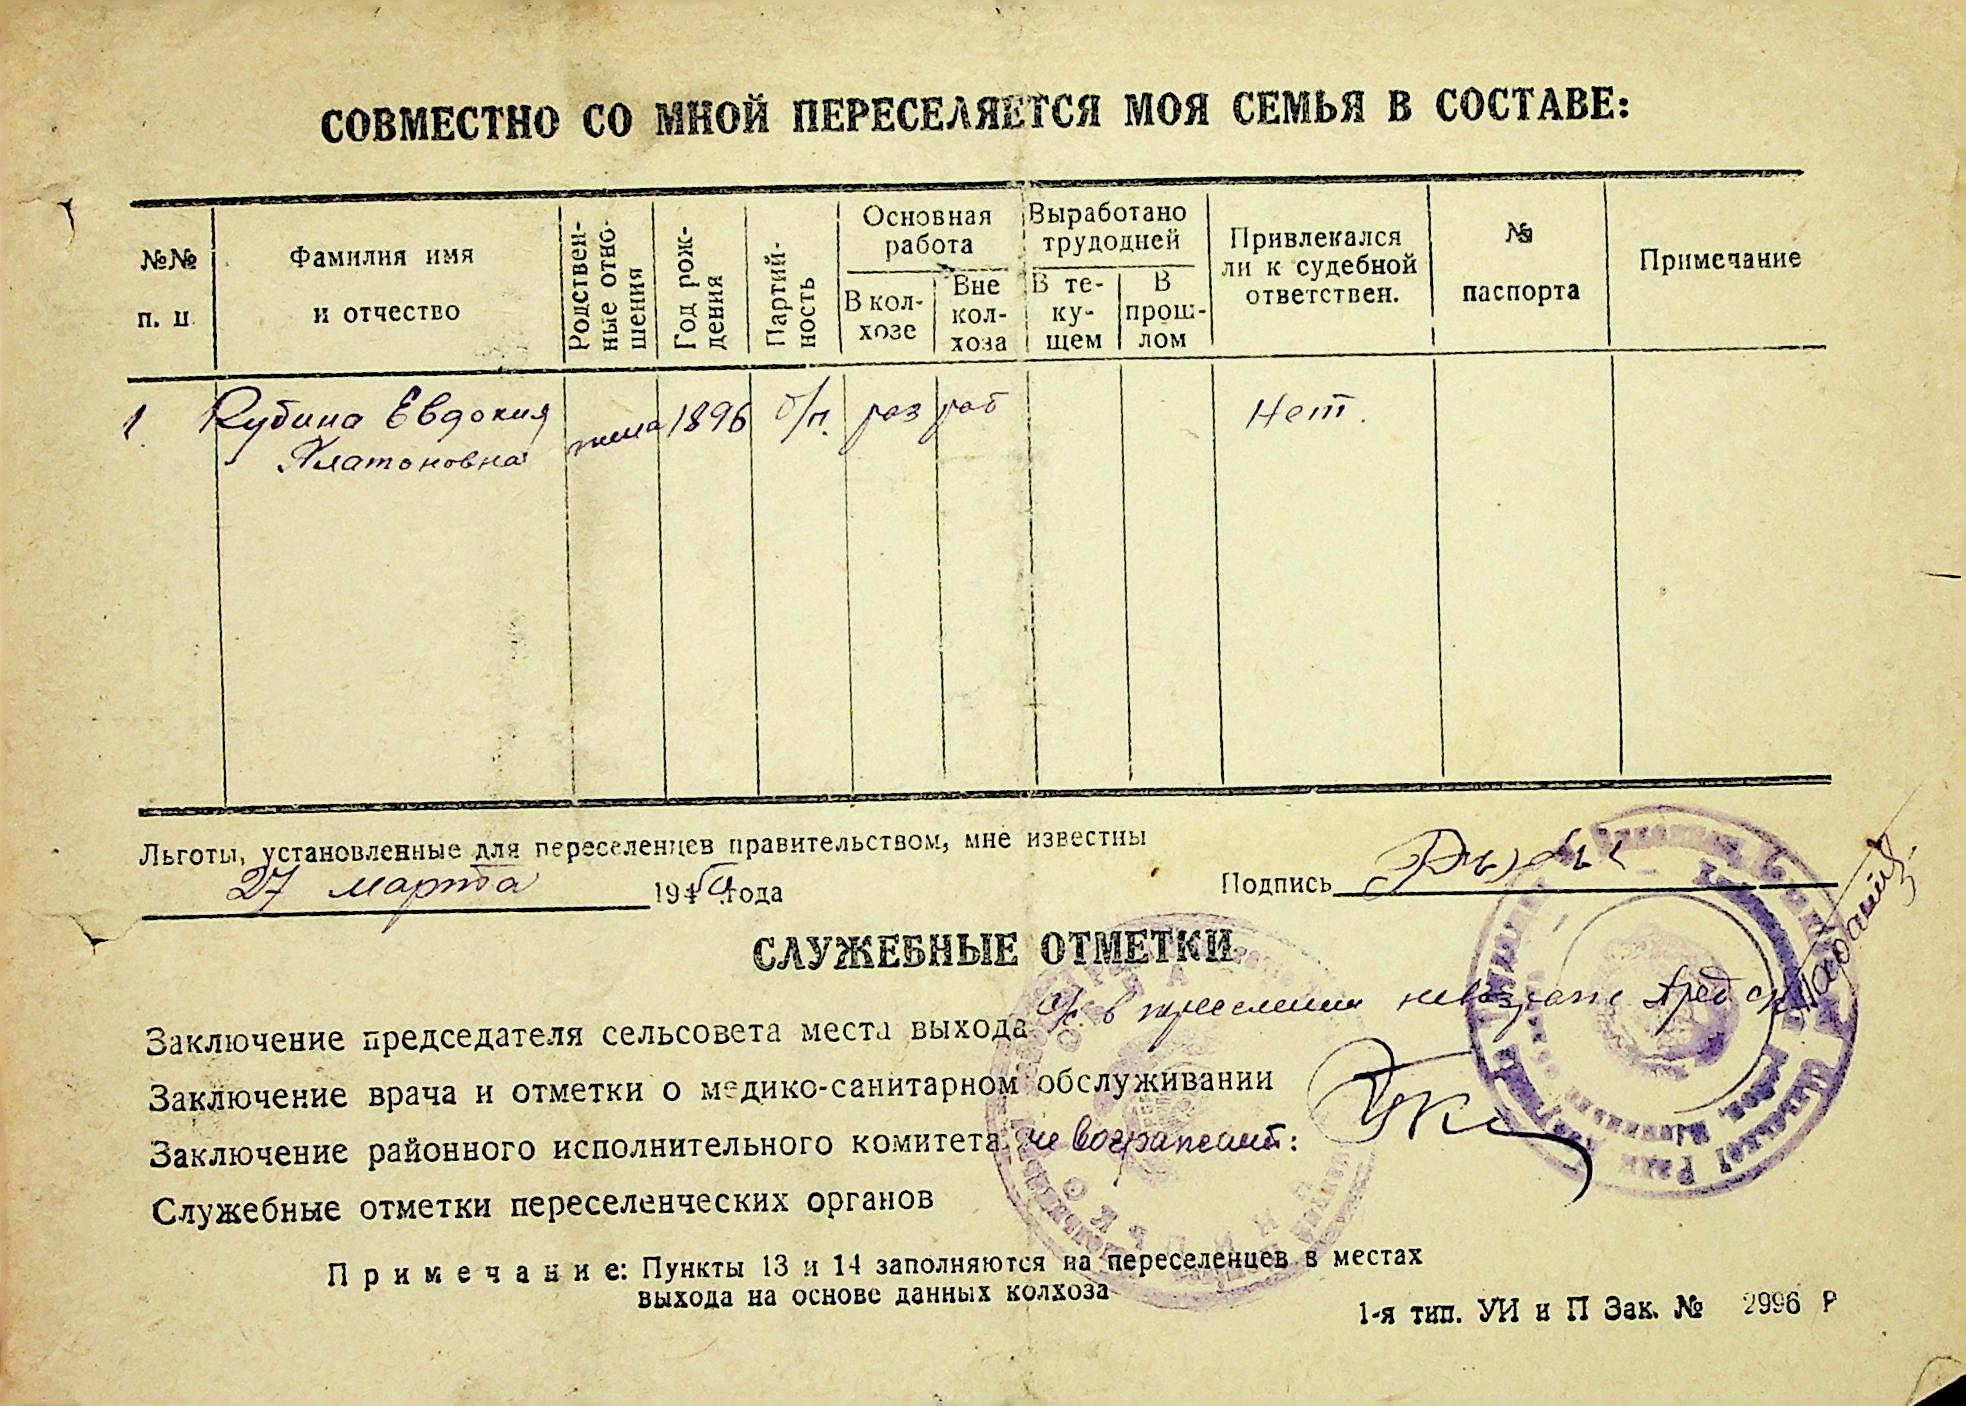 СОВМЕСТНО СО МНОЙ ПЕРЕСЕЛЯЕТСЯ МОЯ СЕМЬЯ В СОСТАВЕ:
№№ п. п.
Фамилия имя и отчество
Родственные отношения
Год рождения
Партийность
Основная работа
В колхозе
Вне колхоза
Выработано трудодней
В текущем
В прошлом
Привлекался ли к судебной ответствен.
№ паспорта
Примечание
1. Рубина Евдокия жена 1896 б/п. раз раб Нет.
Платоновна
Льготы, установленные для переселенцев правительством, мне известны
27 марта 1950 года
Подпись
СЛУЖЕБНЫЕ ОТМЕТКИ
Заключение председателя сельсовета места выхода
Заключение врача и отметки о медико-санитарном обслуживании
Заключение районного исполнительного комитета не возражает:
Служебные отметки переселенческих органов
Примечание: Пункты 13 и 14 заполняются на переселенцев в местах
выхода на основе данных колхоза
1-я тип. УИ и П Зак. № 2996 Р